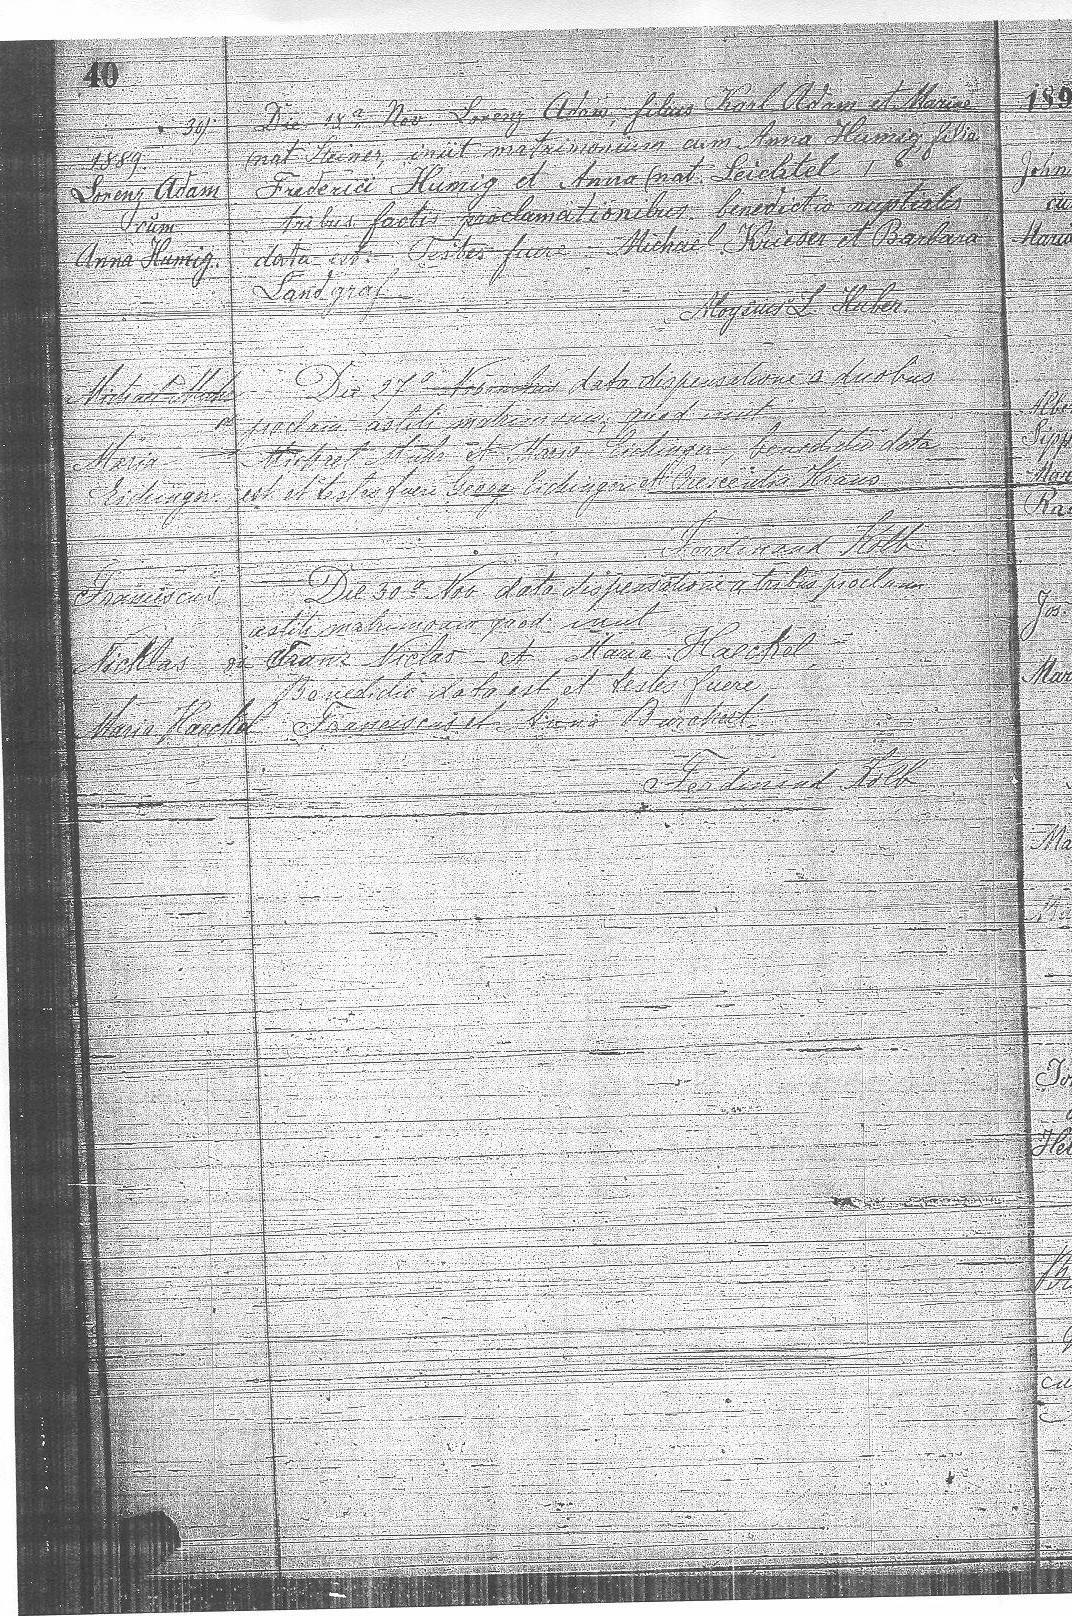 40
189
1889.
Lorenz Adam
cum
Anna Humig.
Die 18ª Nov. Lorenz Adam, filius Karl Adam et Mariae
(nat Steiner, iniit matrimonium cum Anna Humig, filia
Frederici Humig et Anna (nat. Leichtel
tribus factis proclamationibus. benedictio nuptialis
data est. Testes fuere Michael Krieser et Barbara
Landgraf
Aloysius L. Huber.
Maria
Eichinger
Die 27ª Novembris data dispensatione a duobus
proclam astiti matrimonio, quod inunt
Michael et Maria Eichinger, benedictio data
est et testes fuere Georg Eichinger et Crescentia Kraus
Ferdinand Kolb
Franciscus
Nicklas
Maria Haeckel
Die 30ª Nov. data dispensatione a tribus proclam
astiti matrimonio quod inunt
Franz Niclas et Maria Haeckel
Benedictio data est et testes fuere
Franciscus et Burckert
Ferdinand Kolb
John
cu
Maria
Jos.
Mar
Ma
cu